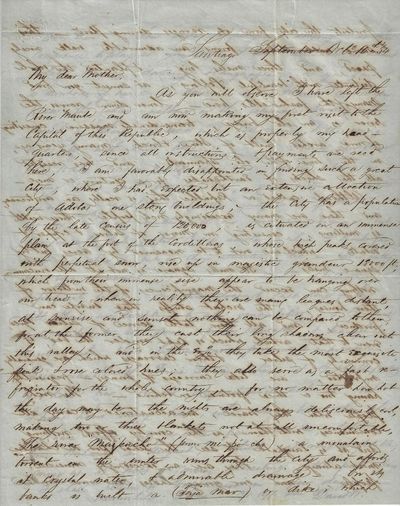 Santiago September
My dear Mother,
As you will observe I have left the
River Maule and am now making my first visit to the
Capital of this Republic, which is properly my head
Quarters, since all instructions & payments are
Here, I am favorably disappointed in finding such a great
City, where I had expected but an extensive collection
of Adobe one story buildings; the City has a population
by the late Census of 120,000, is situated on an immense
plain at the foot of the Cordilleras, whose high peaks covered
with perpetual snow, rise up in majestic grandeur
which from their immense size appear to be hanging over
our head, when in reality they are many leagues distant,
at sunrise and sunset nothing can be compared to them
for at the former they cast their long shadows clear into
this valley, and in the they take the most exquisite
colored lines; they also serve as a vast
for the whole country, for no matter how hot
the day may be the nights are always deliciously cool,
making two or three blankets not at all uncomfortable
The river "Mapocho" a mountain
torrent in the winter winds through the city and affords
at water & admirable drainage. On its
banks is built a or dike, which